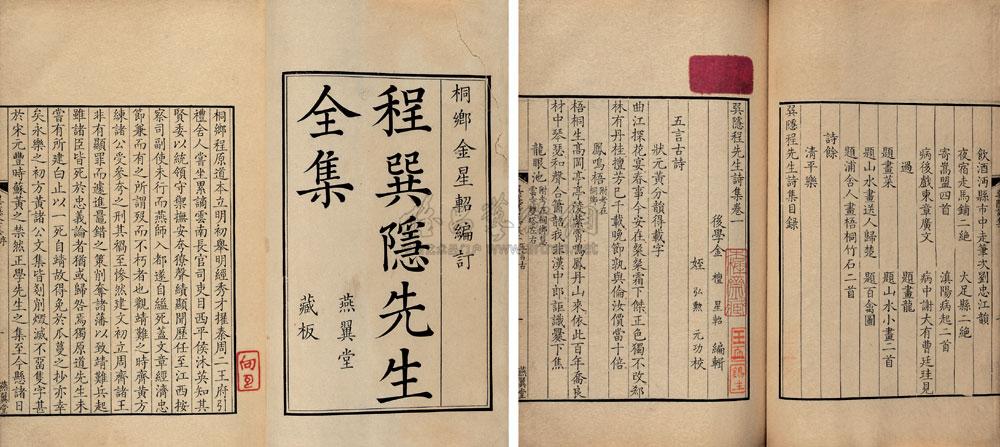 桐鄉金星軺編訂
程巽隱先生
全集
燕翼堂
藏板
桐鄉程原道本立明初舉明經秀才擢秦周二王府引
禮舍人嘗坐累謫雲南長官司吏目西平侯沐英知其
賢委以統領守禦撫安夷獠聲績顯聞歷任至江西按
察司副使未行而燕師入都遂自縊死蓋文章經濟忠
節兼而有之所謂歿而不朽者也觀靖難之時齊黃方
練諸公受參夷之刑其禍至慘然建文初立周齊諸王
非有顯罪而遽進鼂錯之策削奪諸藩以致靖難兵起
雖諸臣皆死於忠義論者猶或歸咎焉獨原道先生未
嘗有所建白止以一死自靖故得免於瓜蔓之抄亦幸
矣永樂之初方黃諸公文集皆刻削燬滅不畱隻字甚
於宋元豐時蘇黃之禁然正學先生之集至今懸諸日
燕翼堂
巽隱程先生詩集卷一
後學金檀星軺編輯
姪弘勲元功校
五言古詩
狀元黃分韻得載字
曲江探花宴春事今安在粲粲霜下傑正色獨不改郄
林有丹桂擅芳已千載晚節孰與倫汝價當十倍
鳳鳴梧 附考在桐鄉
梧桐生高岡亭亭陵紫霄鳴鳳丹山來依此百年喬良
材中琴瑟和聲合簫韶我非漢中郎詎識爨下焦
龍眼池
飲酒沔縣市中走筆次劉忠江韻
夜宿走馬鋪二絕 大足縣二絕
寄嵩盟四首 滇陽病起二首
病後戲柬章廣文 病中謝大有曹廷珪見
過 題畫龍
題畫菜 題山水小畫二首
題山水畫送人歸楚 題百禽圖
題浦舍人畫梧桐竹石二首
詩餘
清平樂
巽隱程先生詩集目録